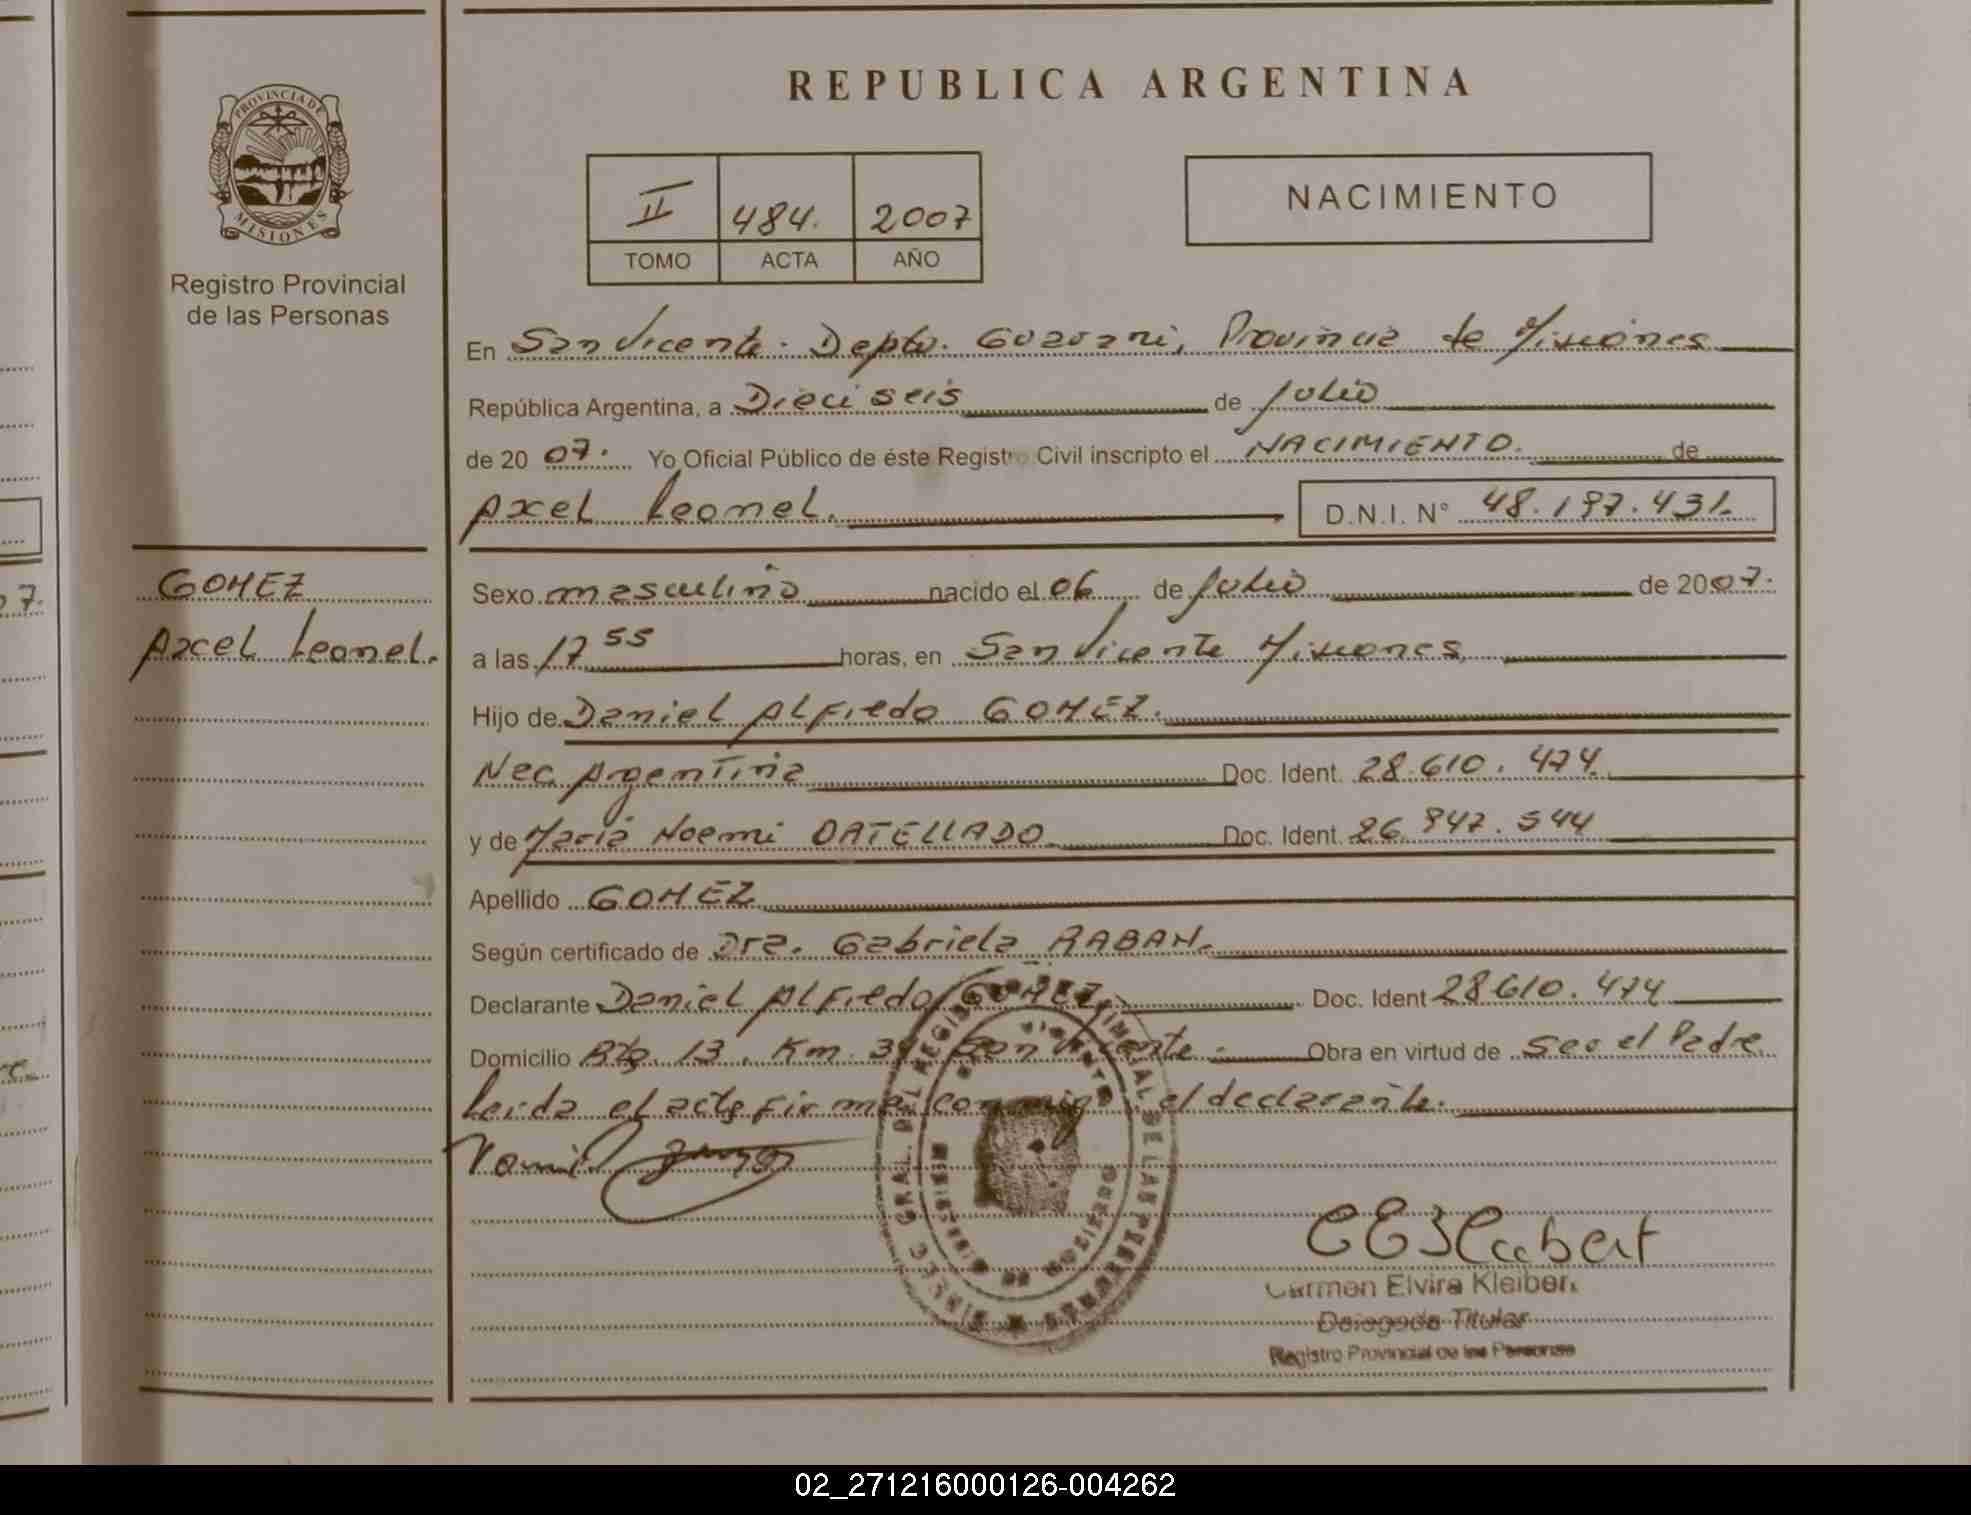 PROVINCIA DE
MISIONES
Registro Provincial
de las Personas
GOMEZ
Axcel Leonel.
REPUBLICA ARGENTINA
II 484. 2007
TOMO ACTA AÑO
NACIMIENTO
En San Vicente. Depto. Guarani, Provincia de Misiones
República Argentina, a Dieciseis de Julio
de 20 07. Yo Oficial Público de éste Registro Civil inscripto el NACIMIENTO. de
Axcel Leonel. D.N.I. N° 48.197.431.
Sexo masculino nacido el 06 de Julio de 2007.
a las 17 55 horas, en San Vicente Misiones
Hijo de Daniel Alfredo GOMEZ.
Nac. Argentina Doc. Ident. 28.610.474.
y de Maria Noemi DATELLADO Doc. Ident. 26.847.544
Apellido GOMEZ
Según certificado de Dra. Gabriela RABAN.
Declarante Daniel Alfredo GOMEZ, Doc. Ident 28610.474
Domicilio Rta. 13. Km. San Vicente. Obra en virtud de ser el Padre
Leida el acta firma conmigo el declarante.
Carmen Elvira Kleibert
Delegada Titular
Registro Provincial de las Personas
02_271216000126-004262